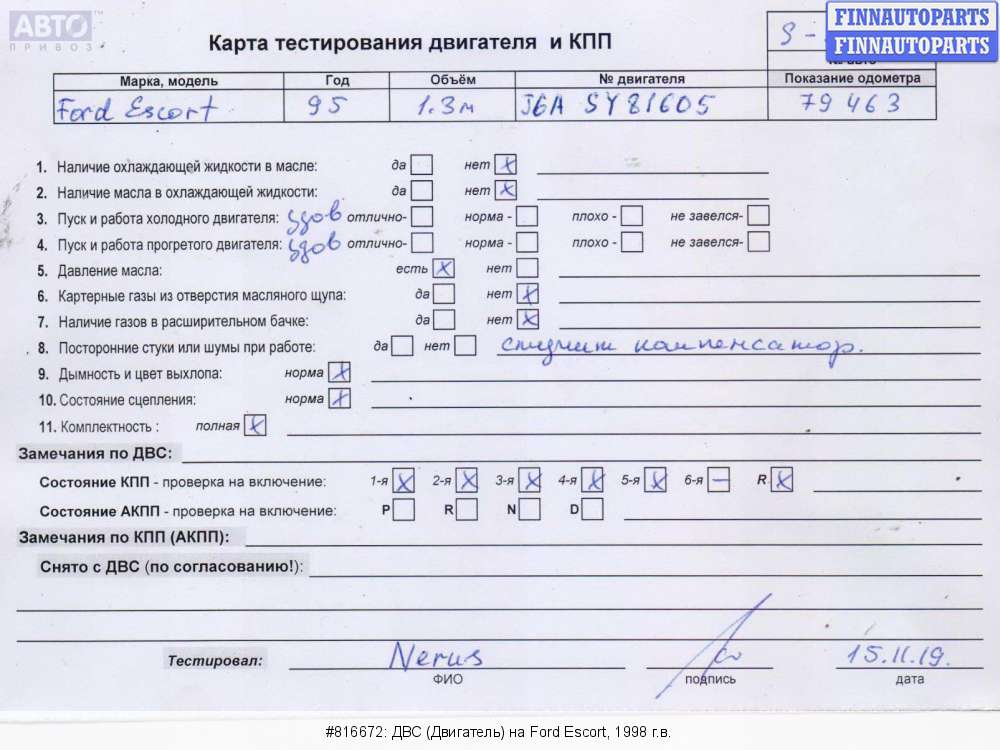 АВТО
ПРИВОЗ
FINNAUTOPARTS
FINNAUTOPARTS
Карта тестирования двигателя и КПП
Марка, модель Год Объём № двигателя Показание одометра
Ford Escort 95 1.3м J6A SY81605 79 463
1. Наличие охлаждающей жидкости в масле: да нет X
2. Наличие масла в охлаждающей жидкости: да нет X
3. Пуск и работа холодного двигателя: удов отлично- норма - плохо - не завелся-
4. Пуск и работа прогретого двигателя: удов отлично- норма - плохо - не завелся-
5. Давление масла: есть X нет
6. Картерные газы из отверстия масляного щупа: да нет X
7. Наличие газов в расширительном бачке: да нет X
8. Посторонние стуки или шумы при работе: да нет стучит компенсатор.
9. Дымность и цвет выхлопа: норма X
10. Состояние сцепления: норма X
11. Комплектность : полная X
Замечания по ДВС:
Состояние КПП - проверка на включение: 1-я X 2-я X 3-я X 4-я X 5-я X 6-я – R X
Состояние АКПП - проверка на включение: P R N D
Замечания по КПП (АКПП):
Снято с ДВС (по согласованию!):
Тестировал: Nerus 15.11.19.
ФИО подпись дата
#816672: ДВС (Двигатель) на Ford Escort, 1998 г.в.